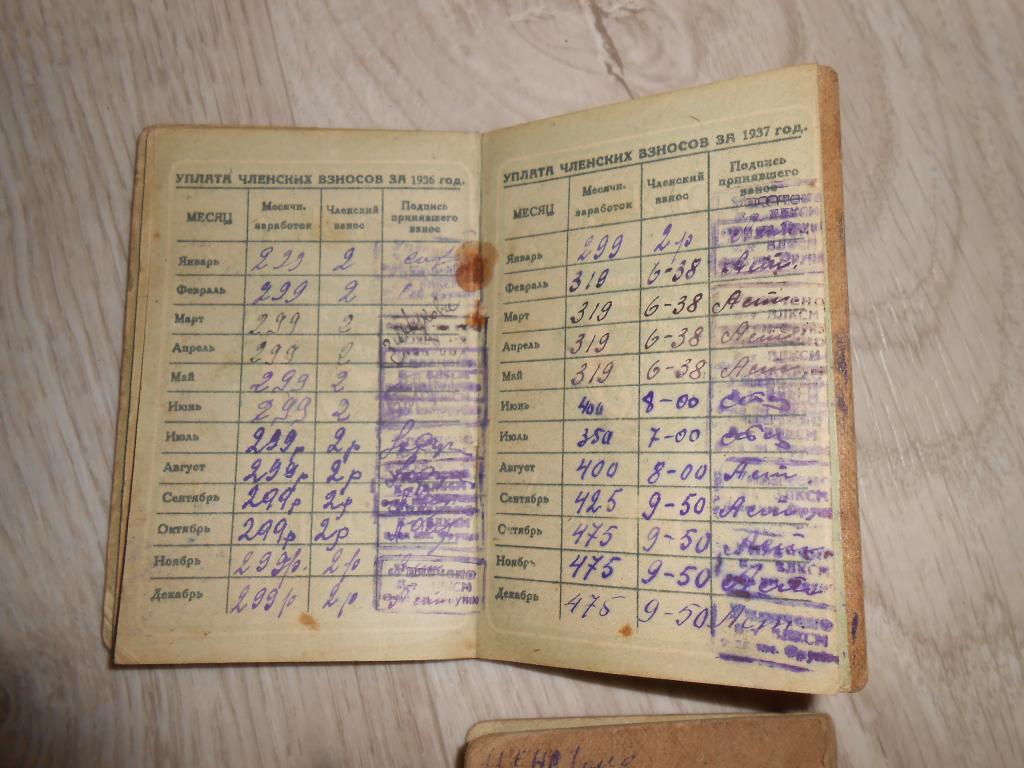 УПЛАТА ЧЛЕНСКИХ ВЗНОСОВ ЗА 1936 год.
МЕСЯЦ Месячн. заработок Членский взнос Подпись принявшего взнос
Январь 299 2
Февраль 299 2
Март 299 2
Апрель 299 2
Май 299 2
Июнь 299 2
Июль 299р 2р
Август 299р 2р
Сентябрь 299р 2р
Октябрь 299р 2р
Ноябрь 299р. 2р
Декабрь 299р 2р
УПЛАТА ЧЛЕНСКИХ ВЗНОСОВ ЗА 1937 год.
МЕСЯЦ Месячн. заработок Членский взнос Подпись принявшего взнос
Январь 299 2р
Февраль 319 6-38 Аст.
Март 319 6-38 ВЛКСМ
Апрель 319 6-38
Май 319 6-38
Июнь 400 8-00
Июль 350 7-00
Август 400 8-00 Аст
Сентябрь 425 9-50
Октябрь 475 9-50
Ноябрь 475 9-50
Декабрь 475 9-50 Аст ВЛКСМ